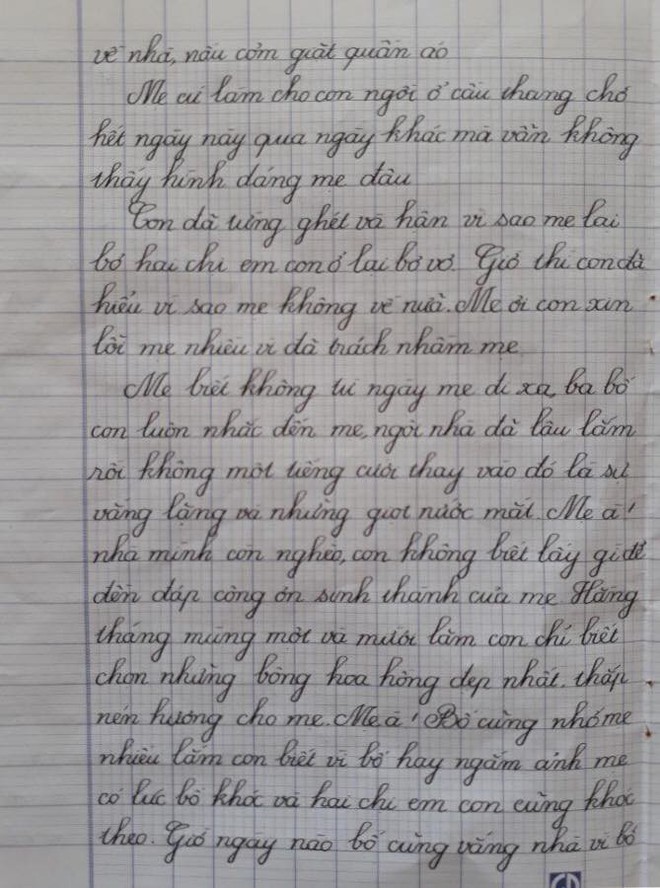 về nhà, nấu cơm giặt quần áo
Mẹ cứ làm cho con ngồi ở cầu thang chờ
hết ngày này qua ngày khác mà vẫn không
thấy hình dáng mẹ đâu
Con đã từng ghét và hận vì sao mẹ lại
bỏ hai chị em con ở lại bơ vơ. Giờ thì con đã
hiểu vì sao mẹ không về nữa. Mẹ ơi con xin
lỗi mẹ nhiều vì đã trách nhầm mẹ
Mẹ biết không từ ngày mẹ đi xa, ba bố
con luôn nhắc đến mẹ, ngôi nhà đã lâu lắm
rồi không một tiếng cười thay vào đó là sự
vắng lặng và những giọt nước mắt. Mẹ à!
nhà mình còn nghèo, con không biết lấy gì để
đền đáp công ơn sinh thành của mẹ Hằng
tháng mùng một và mười lăm con chỉ biết
chọn những bông hoa hồng đẹp nhất. thắp
nén hương cho mẹ. Mẹ à! Bố cũng nhớ mẹ
nhiều lắm con biết vì bố hay ngắm ảnh mẹ
có lúc bố khóc và hai chị em con cũng khóc
theo. Giờ ngày nào bố cũng vắng nhà vì bố